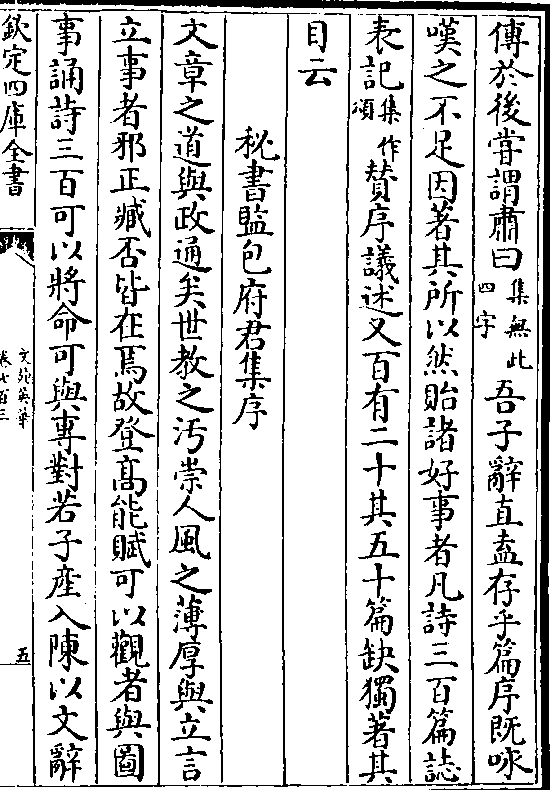 傳於後嘗謂肅曰集無此四字吾子辭直盍存乎篇序既咏
嘆之不足因著其所以然貽諸好事者凡詩三百篇誌
表記集作頌賛序議述又百有二十其五十篇缺獨著其
目云
秘書監包府君集序
文章之道與政通矣世教之汚崇人風之薄厚與立言
立事者邪正臧否皆在焉故登髙能賦可以觀者與圖
事誦詩三百可以將命可與専對若子產入陳以文辭
欽定四庫全書
文苑英華
卷七百三
五